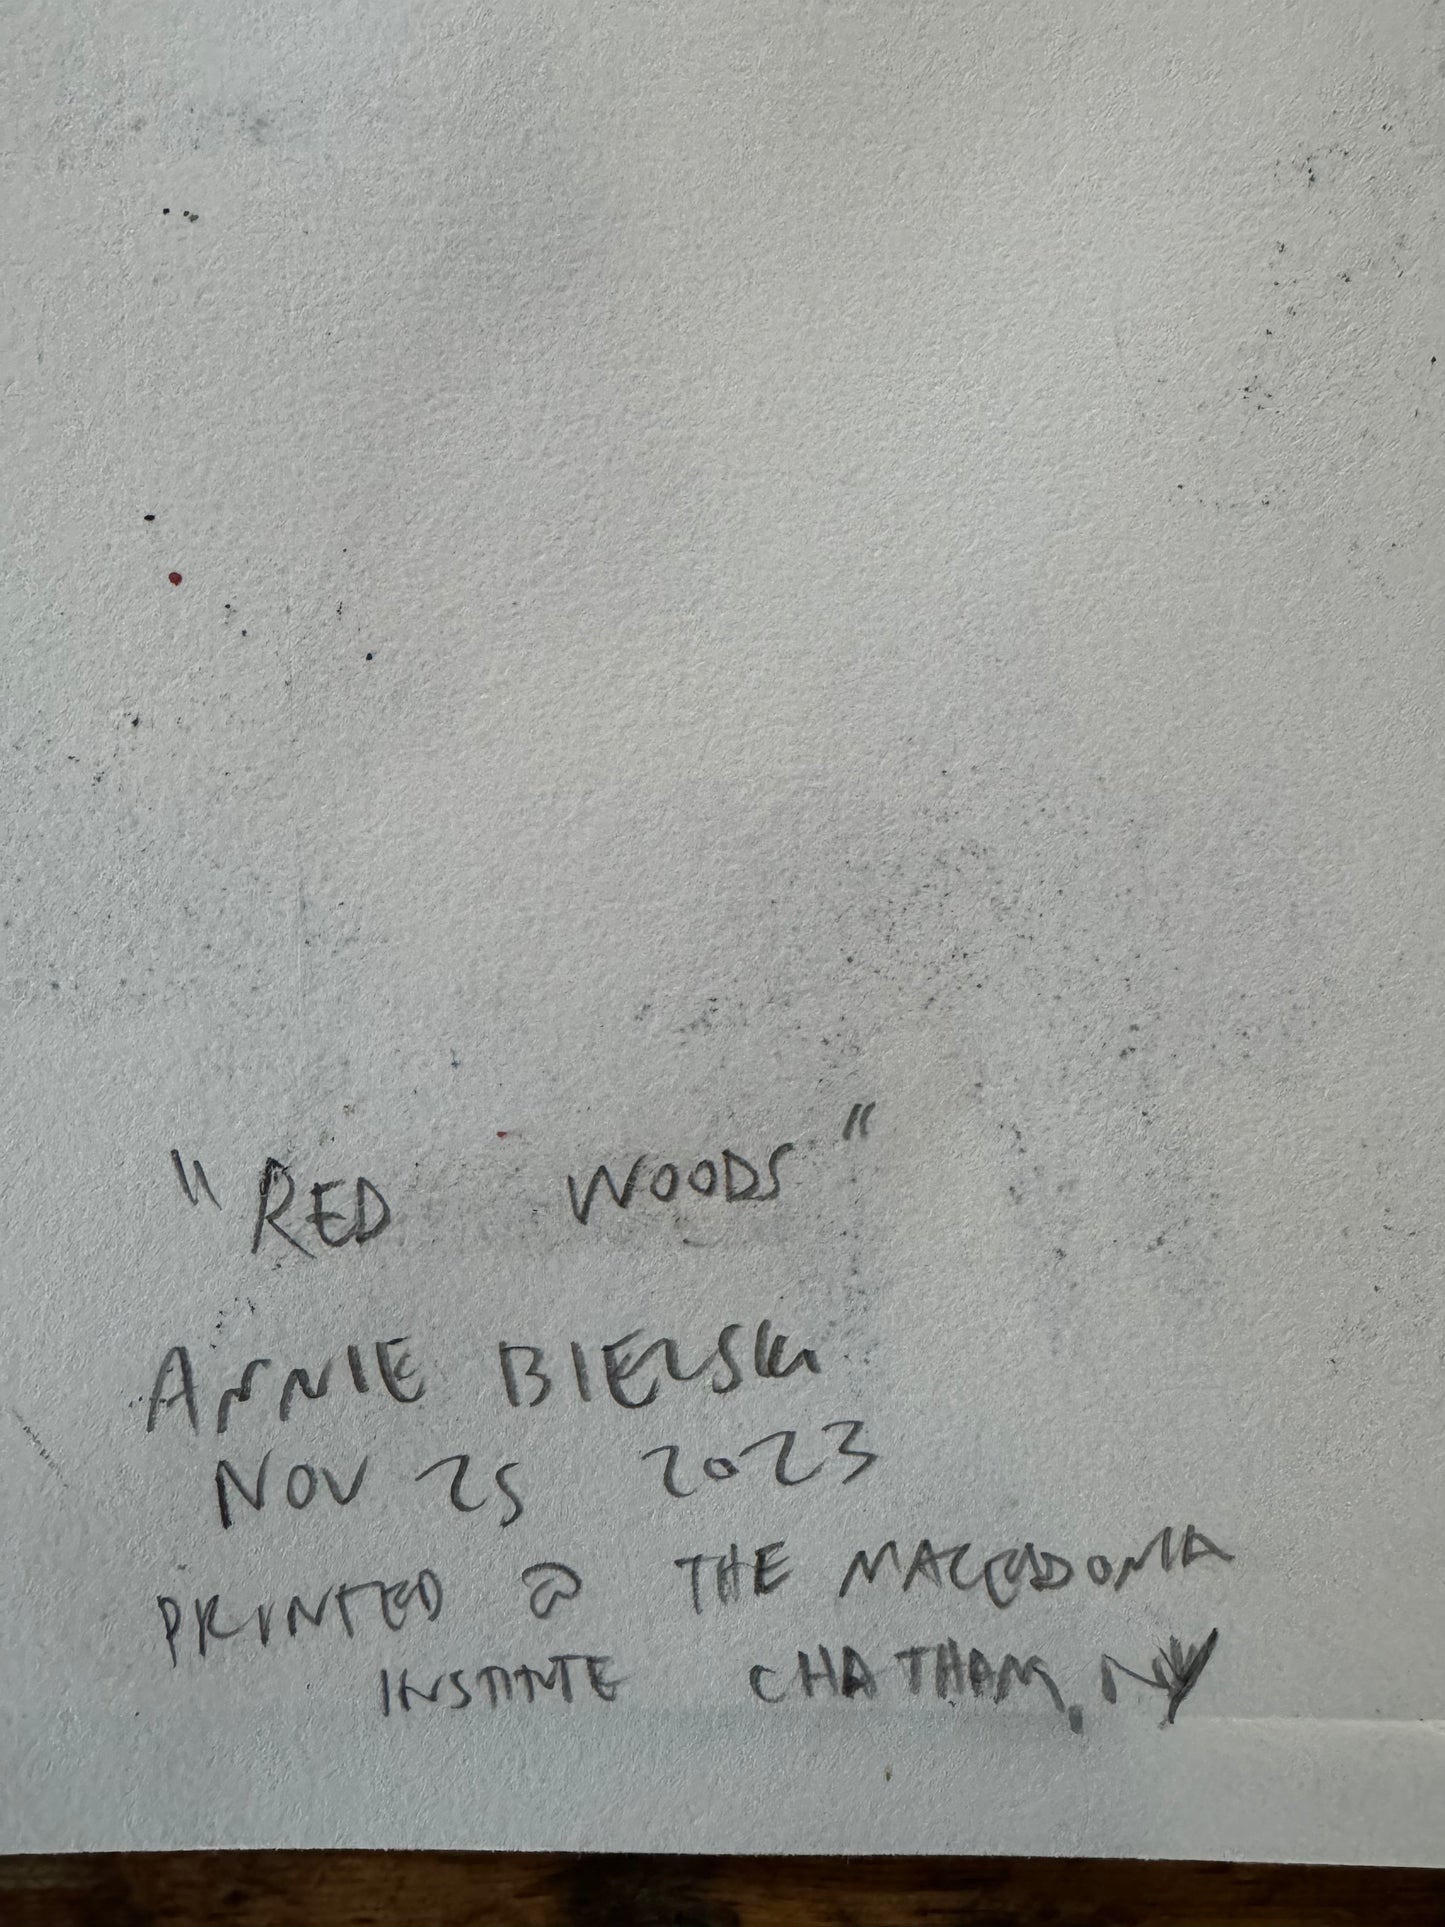 "RED WOODS"
ANNIE BIELSKI
NOV 25 2023
PRINTED @ THE MACEDONIA
INSTITUTE CHATHAM, NY